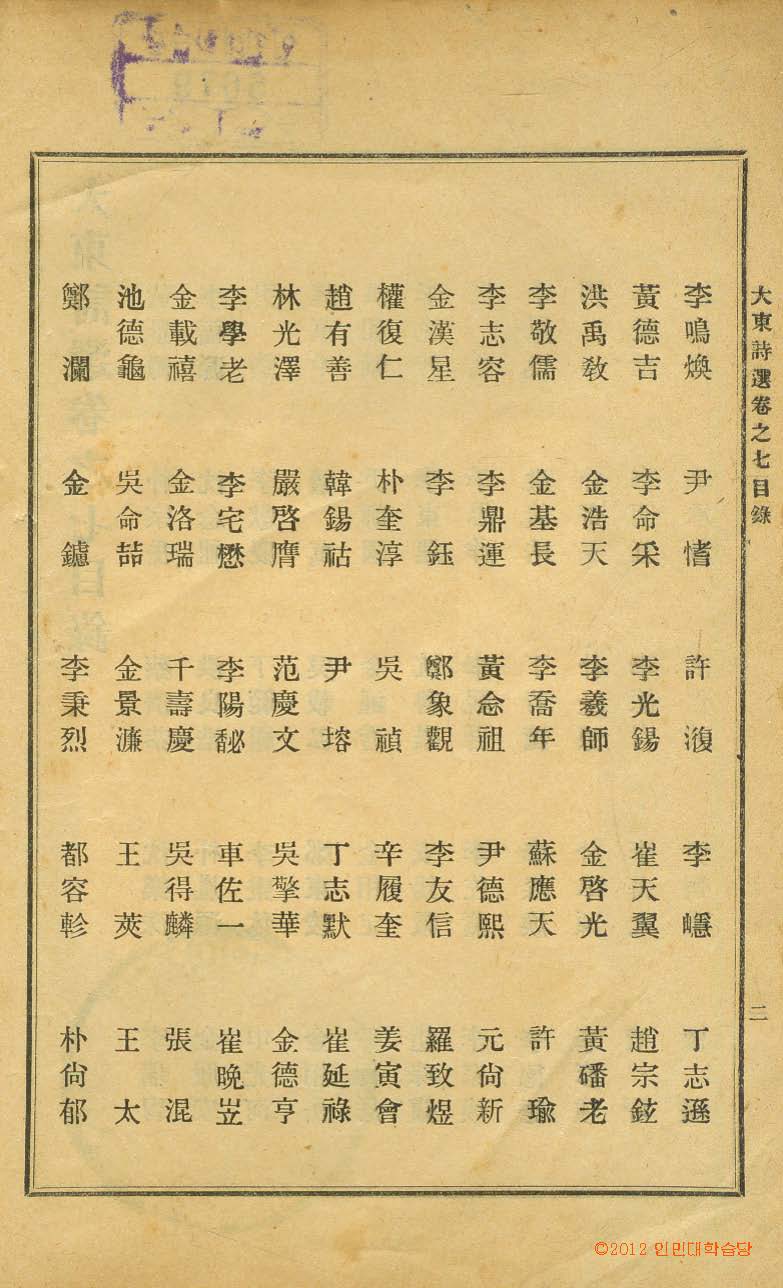 大東詩選卷之七目錄
二
李鳴煥 尹愭 許澓 李㠥 丁志遜
黃德吉 李命采 李光錫 崔天翼 趙宗鉉
洪禹敎 金浩天 李羲師 金啓光 黃磻老
李敬儒 金基長 李喬年 蘇應天 許瑜
李志容 李鼎運 黃念祖 尹德熙 元尙新
金漢星 李鈺 鄭象觀 李友信 羅致煜
權復仁 朴奎淳 吳禎 辛履奎 姜寅會
趙有善 韓錫祜 尹塎 丁志默 崔延祿
林光澤 嚴啓膺 范慶文 吳擎華 金德亨
李學老 李宅懋 李陽馝 車佐一 崔晩岦
金載禧 金洛瑞 千壽慶 吳得麟 張混
池德龜 吳命喆 金景濂 王莢 王太
鄭瀾 金鑢 李秉烈 都容軫 朴尙郁
©2012 인민대학습당